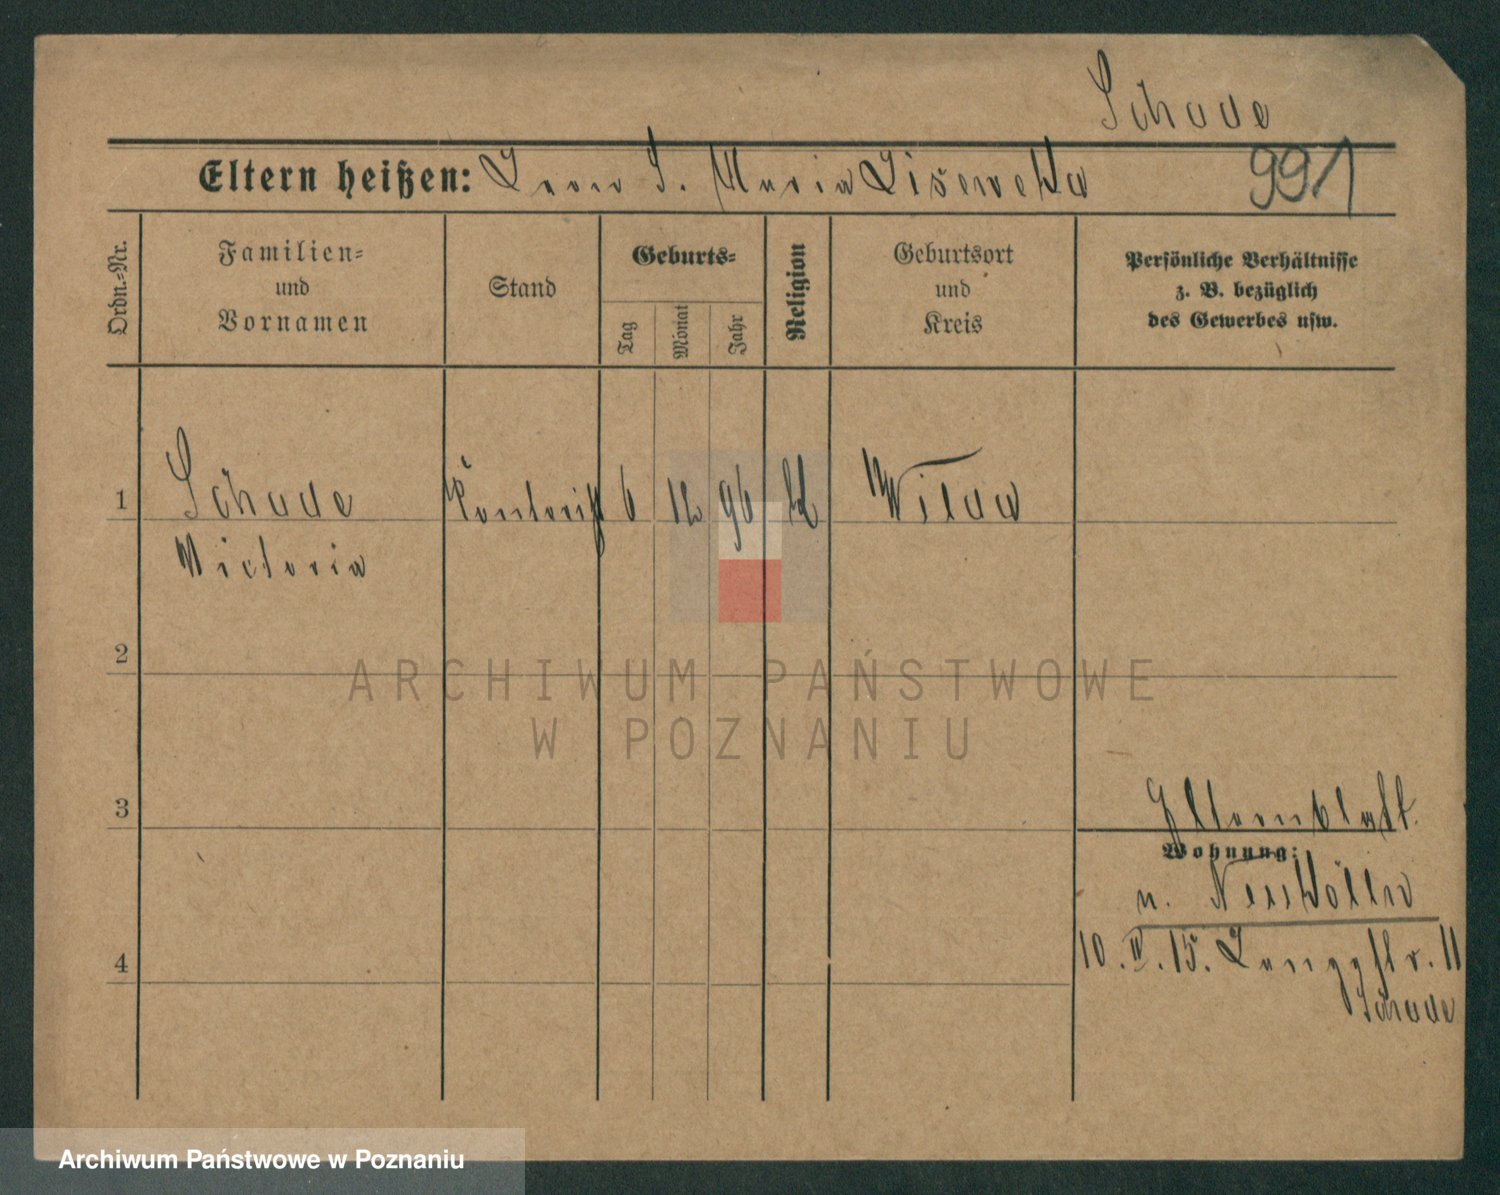 Schade
Eltern heißen: Leon S. Maria Lisewska
991
Ordn.-Nr.
Familien-
und
Vornamen
Stand
Geburts-
Tag
Monat
Jahr
Religion
Geburtsort
und
Kreis
Persönliche Verhältnisse
z. B. bezüglich
des Gewerbes usw.
1 Schade 6 12 96 Wilda
Victoria
2
3
Elternblatt.
Wohnung:
n. Neukölln
4
10. 15. Langestr. 11
Schade
ARCHIWUM PAŃSTWOWE
W POZNANIU
Archiwum Państwowe w Poznaniu